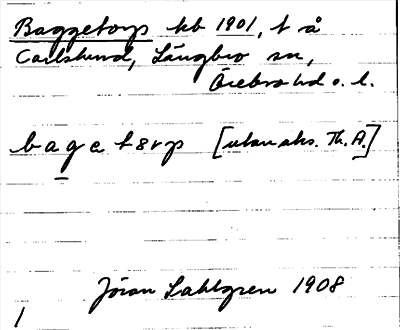 Baggetorp kb 1901, t å
Carlslund, Längbro sn,
Örebro hd o. l.
bagetorp [utan aks. Th. A.]
Jöran Sahlgren 1908
1